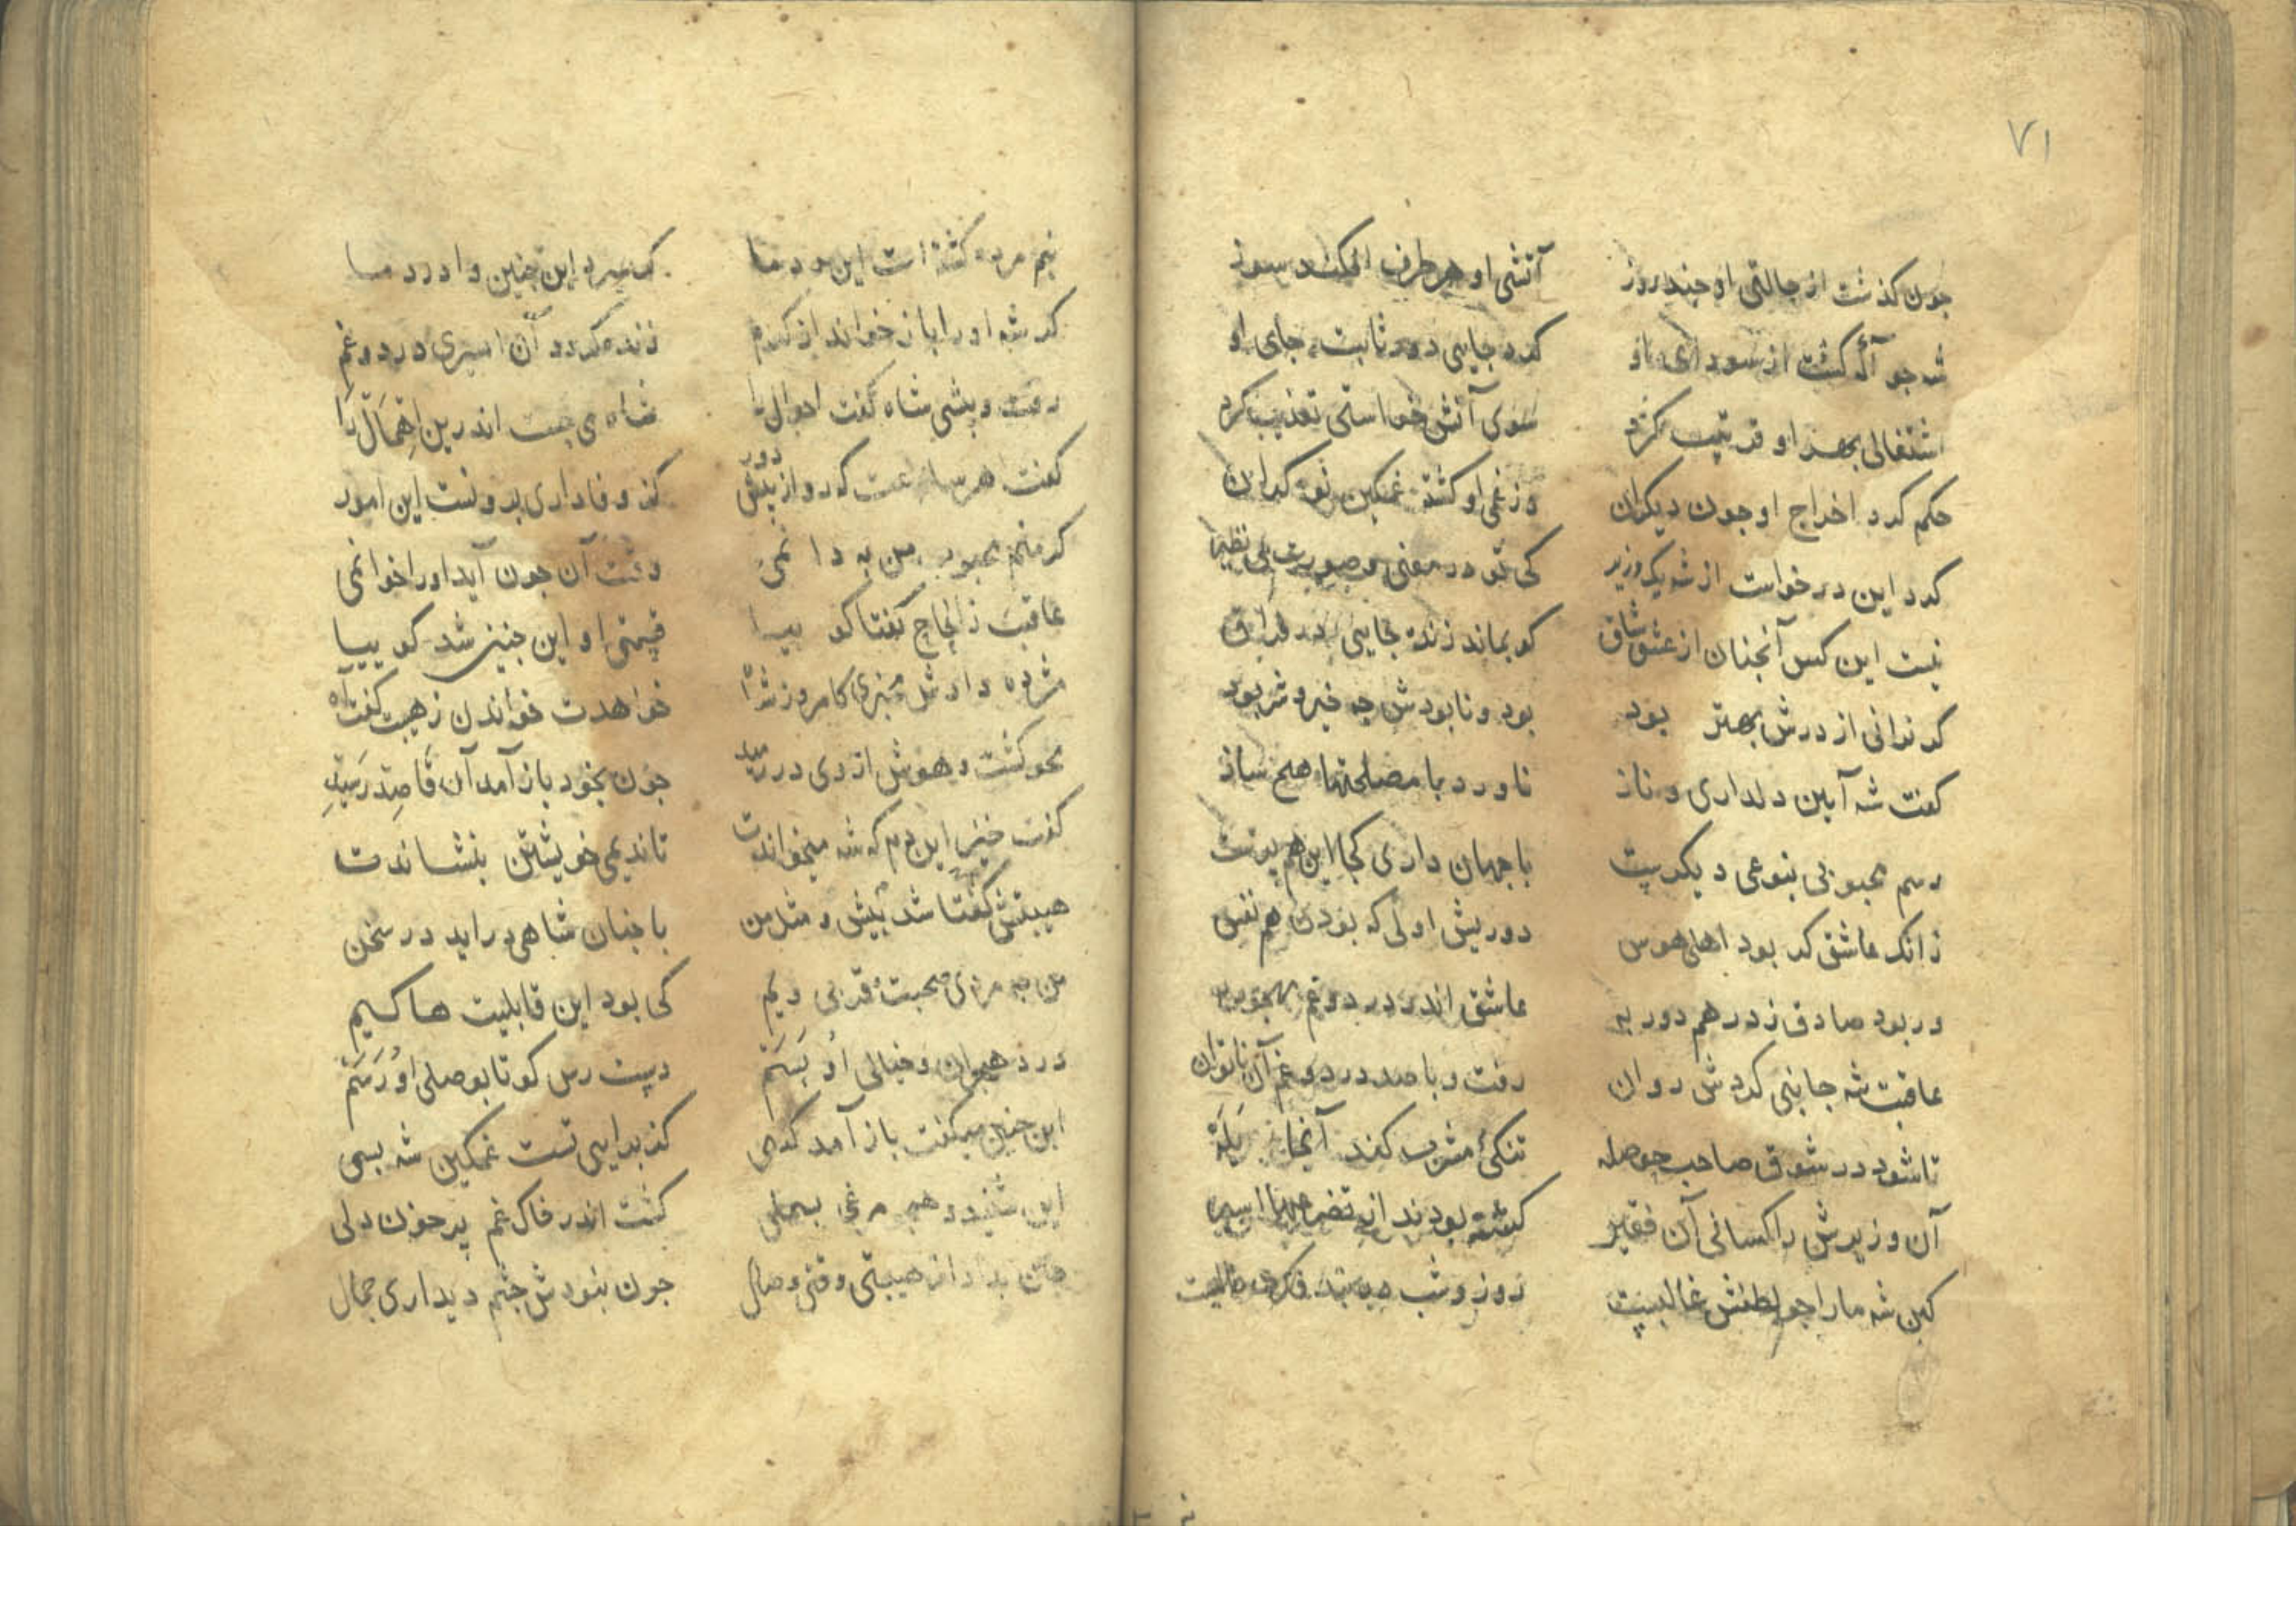 ٧١
جون كذشت از حالتی او جند روز آتشی او هر طرف افكند سوز
شه جو آكه كشت از سودای او كرد جایی دور ثابت جای او
اشتغالی بهر او ترتیب كرد سوی آتش خواستی تعذیب كرد
حكم كرد اخراج او جون دیكران وز غمی او كشته غمكین
كرد این درخواست از شه یك وزیر كی تو در معنی و صورت بی نظیر
نیست این كس آنجنان از عشق شاق كو بماند زنده جایی در فراق
كر نرانی از درش بهتر بود بود و نابودش جه خیر و شر بود
كفت شه آیین دلداری و ناز ناورد با مصلحتها هیج ساز
رسم محبوبی بنوعی دیكرست با جهان داری كجا این هم برست
زانك عاشق كر بود اهل هوس دوریش اولی كه بودن هم نفس
ور بود صادق ز در هم دور به عاشق اندر درد و غم مهجور به
عاقبت شه جانبی كردش روان رفت و با صد درد و غم آن ناتوان
تا شود در شوق صاحب حوصله تنكئ مشرب كند آنجا یله
آن وزیرش را كسانی آن فقیر كشته بودند از
كین شه ما را جو لطفش غالبست روز و شب
نیم مرده كشته است این
كه شه او را باز خواند از كرم زنده كردد آن اسیری درد و غم
رفت و پیشی شاه كفت احوال را شاه می جست اندرین اهمال را
كفت هر ساعت كه رو از پیش دور كز وفاداری برونست این امور
كر منم محبوب من به دانمی وقت آن جون آید او را خوانمی
عاقبت ز الحاح كفتا كو بیا قیمتی او این جنین شد كو بیا
مژده دادش مخبری كامروز شاه خواهدت خواندن ز هیبت كفت آه
محو كشت و هوش از وی در رمید جون بخود باز آمد آن قاصد رسید
كفت خیز این دم كه شه میخواندت تا ندیمی خویشتن بنشاندت
هیبتش كفتا شد پیش و مثل من با جنان شاهی دراید در سخن
من جه مردی صحبت قربی ویم كی بود این قابلیت ها كیم
درد هجران و خیالی او بسم دست رس كو تا بوصلی او رسم
این جنین میكفت باز آمد كسی كز بدایی تست غمكین شه بسی
این شنید و همجو مرغی بسملی كشت اندر خاك غم پر خون دلی
جان بداد از هیبتی وقتی وصال جون بنودش جشم دیداری جمال